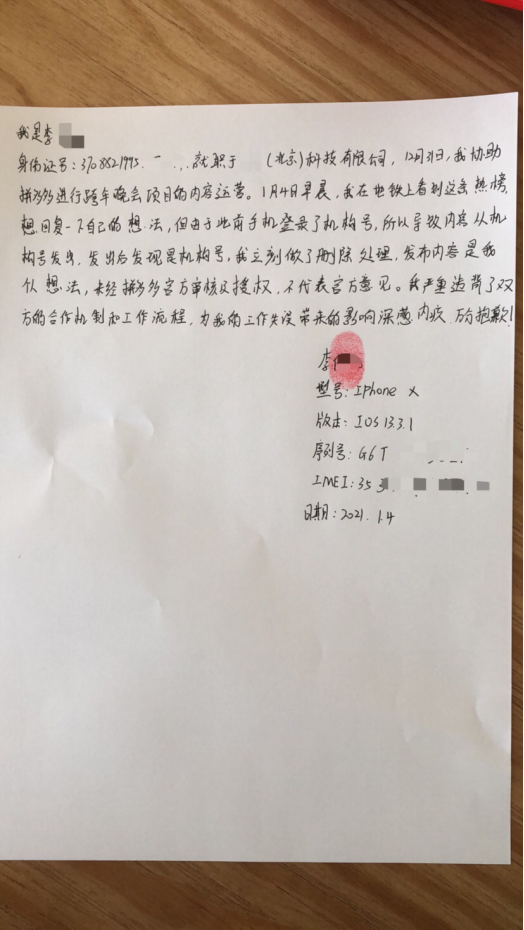 我是李
身份证号:3708821995. 就职于 (北京)科技有限公司，12月31日，我协助
拼多多进行跨年晚会项目的内容运营。1月4日早晨，我在地铁上看到这条热榜，
想回复一下自己的想法，但由于此前手机登录了机构号，所以导致内容从机
构号发出，发出后发现是机构号，我立刻做了删除处理，发布内容是我
个人想法，未经拼多多官方审核及授权，不代表官方意见。我严重违背了双
方的合作机制和工作流程，为我的工作失误带来的影响深感内疚，万分抱歉!
李
型号:Iphone X
版本:IOS 13.3.1
序列号:G6T
IMEI:35 3
日期:2021.1.4